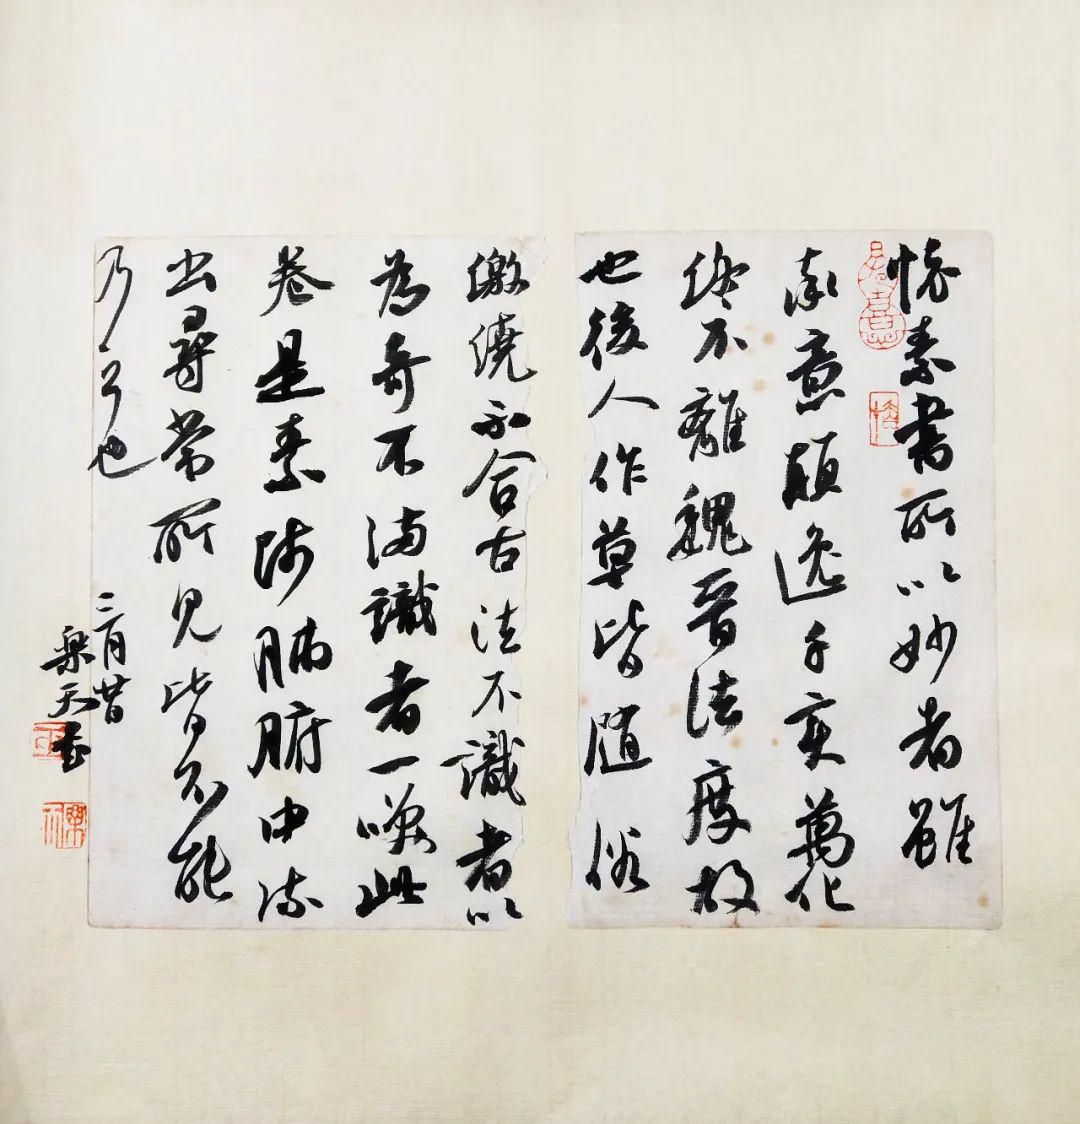 懷素書所以妙者雖
率意顛逸千變萬化
終不離魏晉法度故
也後人作草皆隨俗
繳繞不合古法不識者以
為奇不滿識者一咲此
卷是素師肺腑中流
出尋常所見皆不能
乃尔也
月昔
樂天書